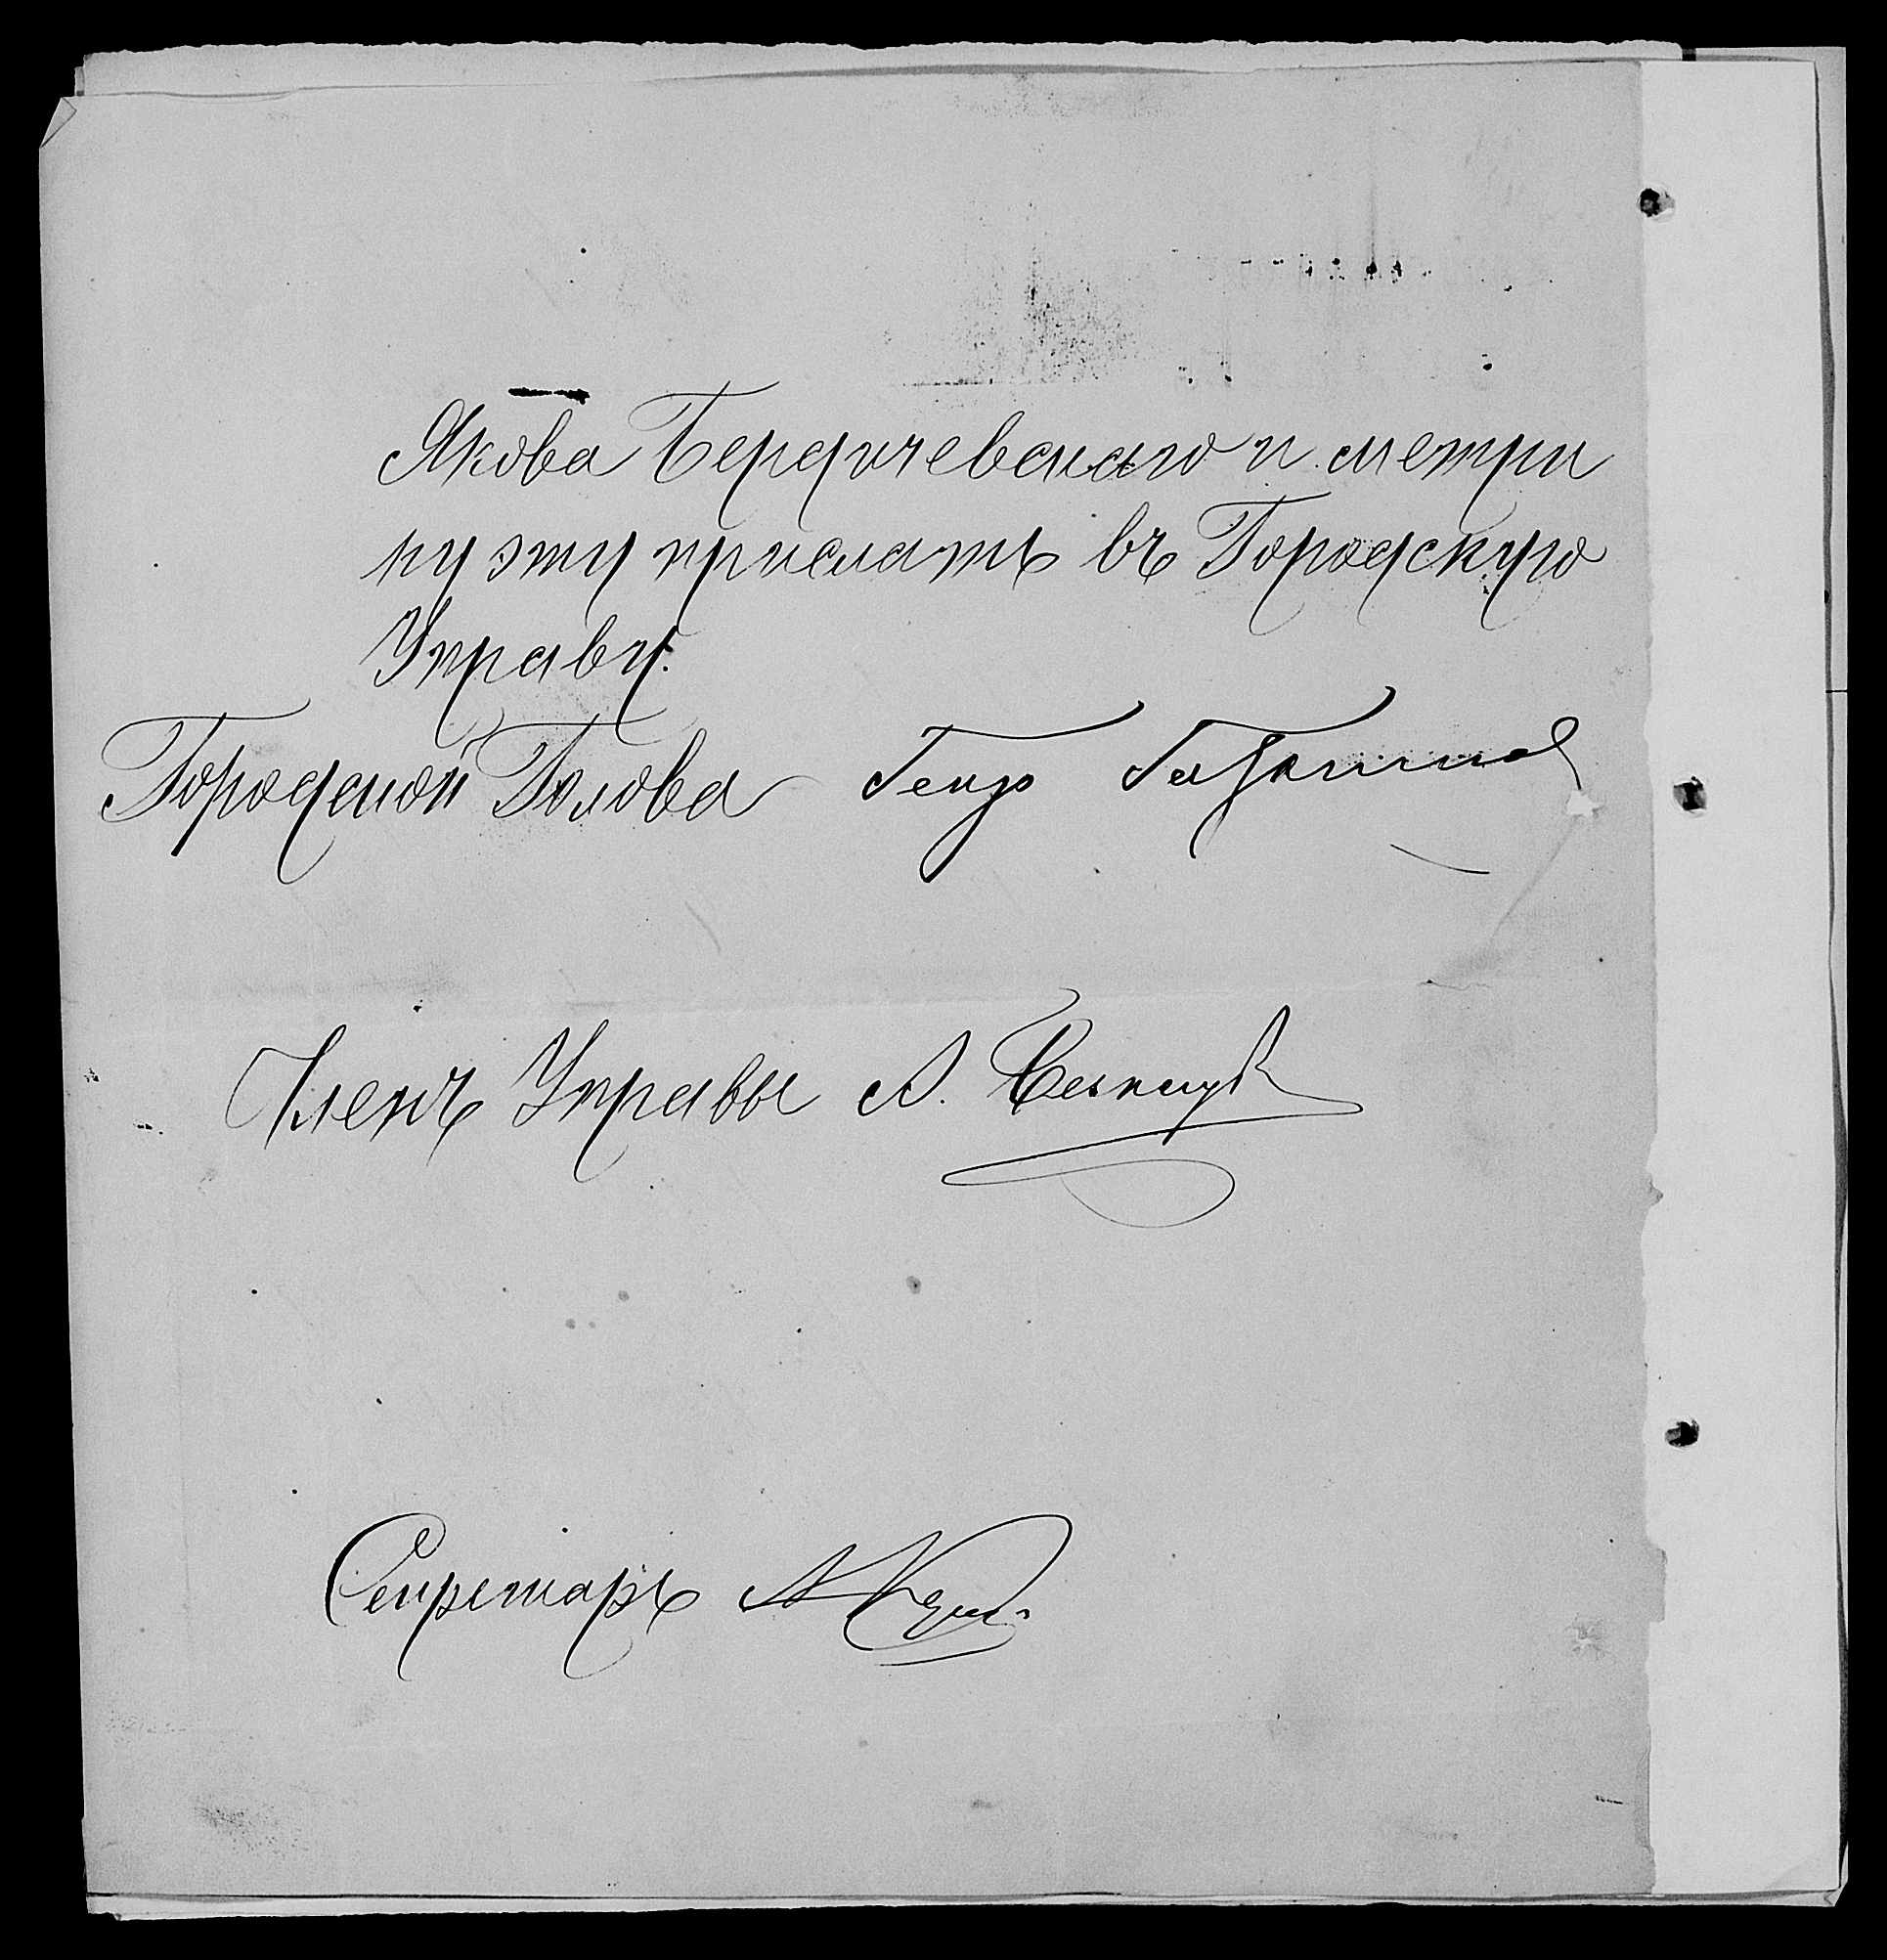 Якова Бердичевскаго и метри
ку эту прислать въ Городскую
Управу.
Городской Голова
Членъ Управы А.
Секретарь